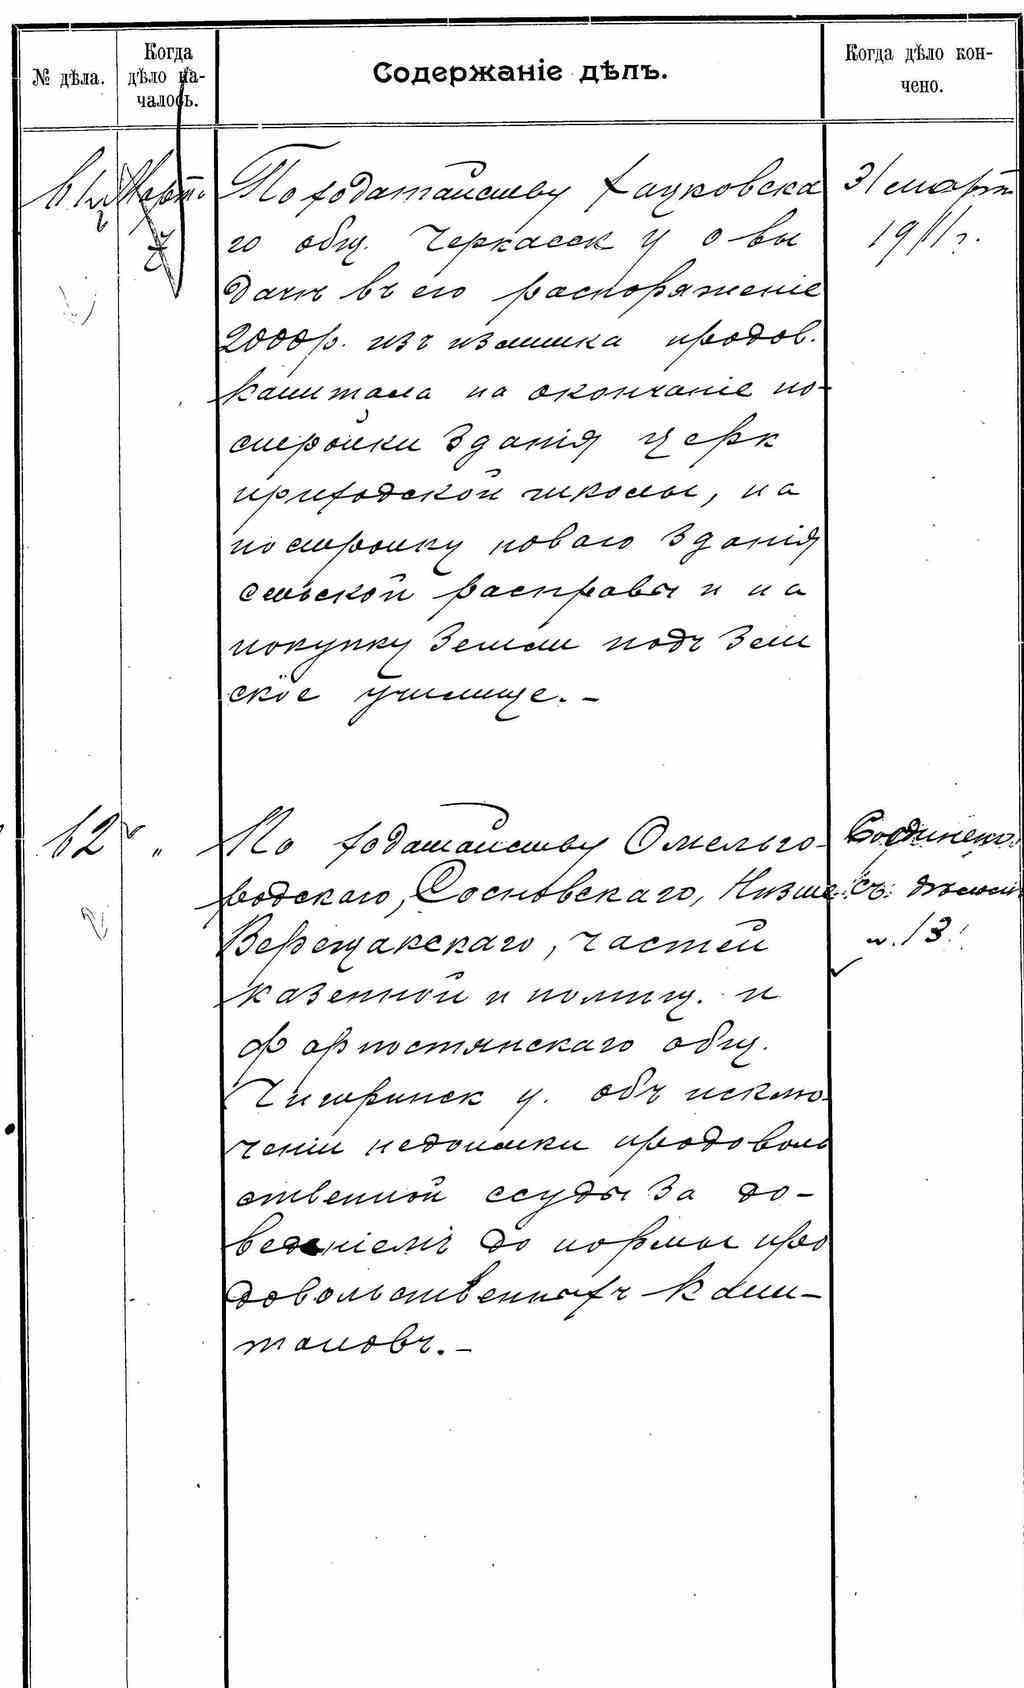 № дѣла.
Когда
дѣло на-
чалось.
Содержаніе дѣлъ.
Когда дѣло кон-
чено.
61 Март.
По ходатайству Хацковска
го общ. Черкасск у о вы
дачѣ въ его распоряженіе
2000р. изъ излишка продов.
капитала на окончаніе по-
стройки зданія церк
приходской школы, на
постройку новаго зданія
сельской расправы и на
покупку земли подъ зем
ское училище. –
31 март
1911 г.
62 "
По ходатайству Омельго-
родскаго, Сосновскаго, Низше
Верещакскаго, частей
казенной и помѣщ. и
Форпостянскаго общ.
Чигиринск у. объ исклю-
ченіи недоимки продоволь
ственной ссуды за до-
веденіемъ до нормы про
довольственныхъ капи-
таловъ. –
Соединено
съ дѣломъ
н. 13.